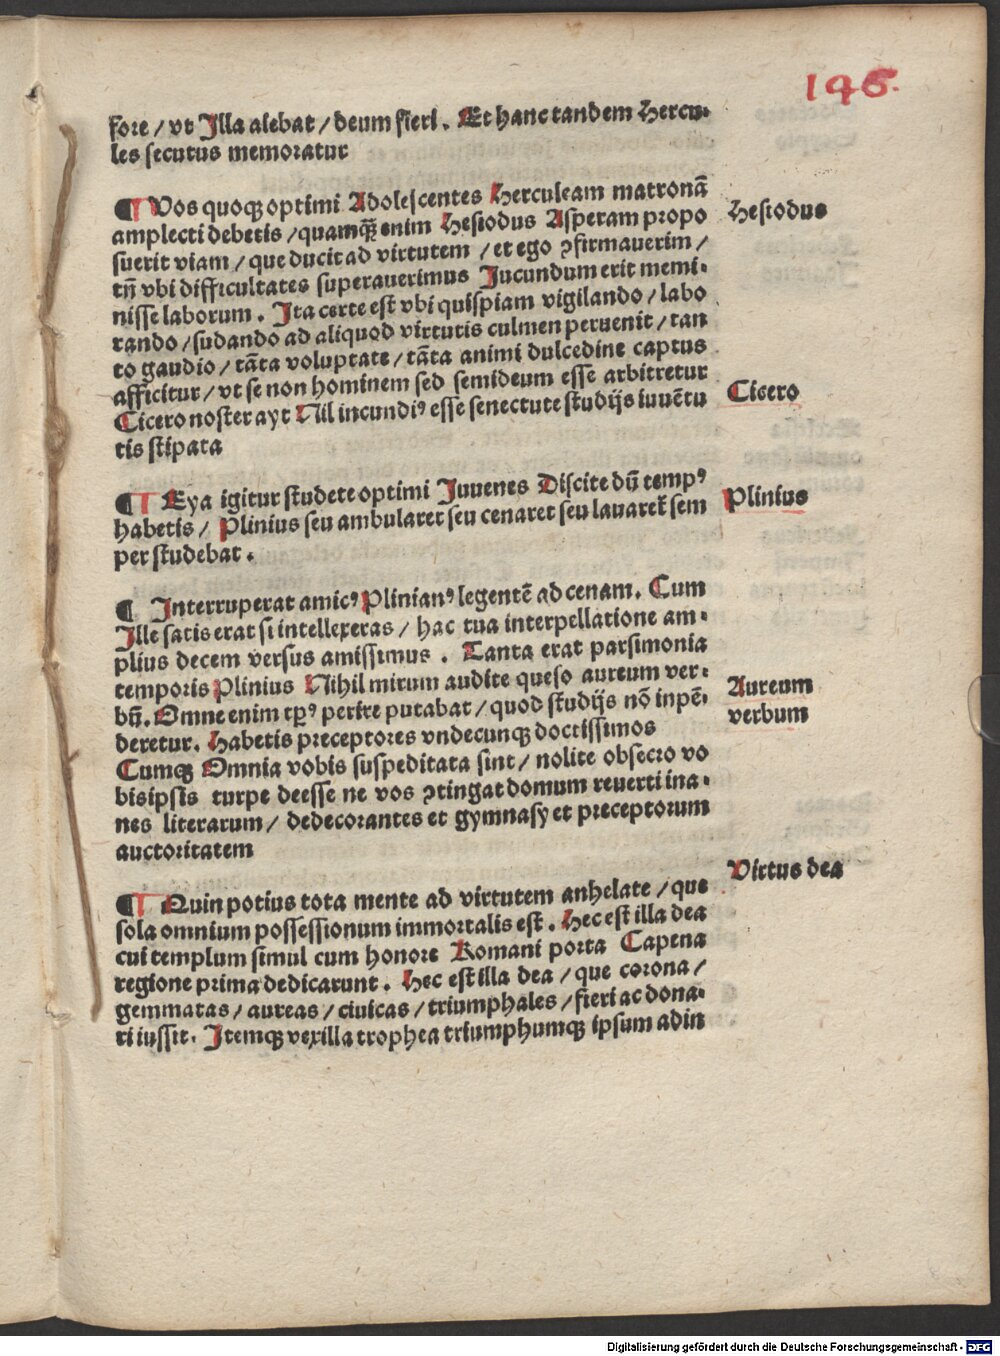 146.
fore / vt Illa aiebat / deum fieri . Et hanc tandem Hercu⸗
les secutus memoratur
¶ Vos quoqꝫ optimi Adolescentes Herculeam matronā
amplecti debetis / quamqꝫ̄ enim Hesiodus Asperam propo
suerit viam / que ducit ad virtutem / et ego ꝯfirmauerim /
tn̄ vbi difficultates superauerimus Jucundum erit memi⸗
nisse laborum . Ita certe est vbi quispiam vigilando / labo
rando / sudando ad aliquod virtutis culmen peruenit / tan
to gaudio / tāta voluptate / tāta animi dulcedine captus
afficitur / vt se non hominem sed semideum esse arbitretur
Cicero noster ayt Nil iucundiꝰ esse senectute studijs iuuētu
tis stipata
¶ Eya igitur studete optimi Juuenes Discite dū tempꝰ
habetis / Plinius seu ambularet seu cenaret seu lauaret̄ sem
per studebat .
¶ Interruperat amicꝰ Plinianꝰ legentē ad cenam . Cum
Ille satis erat si intellexeras / hac tua interpellatione am⸗
plius decem versus amissimus . Tanta erat parsimonia
temporis Plinius Nihil mirum audite queso aureum ver⸗
bū. Omne enim tp̄ꝰ perire putabat / quod studijs nō inpē⸗
deretur. Habetis preceptores vndecunqꝫ doctissimos
Cumqꝫ Omnia vobis suspeditata sint / nolite obsecro vo
bisipsis turpe deesse ne vos ꝯtingat domum reuerti ina⸗
nes literarum / dedecorantes et gymnasy et preceptorum
auctoritatem
¶ Quin potius tota mente ad virtutem anhelate / que
sola omnium possessionum immortalis est . Hec est illa dea
cui templum simul cum honore Romani porta Capena
regione prima dedicarunt . Hec est illa dea / que corona /
gemmatas / aureas / ciuicas / triumphales / fieri ac dona⸗
ri iussit. Itemqꝫ vexilla trophea triumphumqꝫ ipsum adin
Hesiodus
Cicero
Plinius
Aureum
verbum
Virtus dea
Digitalisierung gefördert durch die Deutsche Forschungsgemeinschaft - DFG